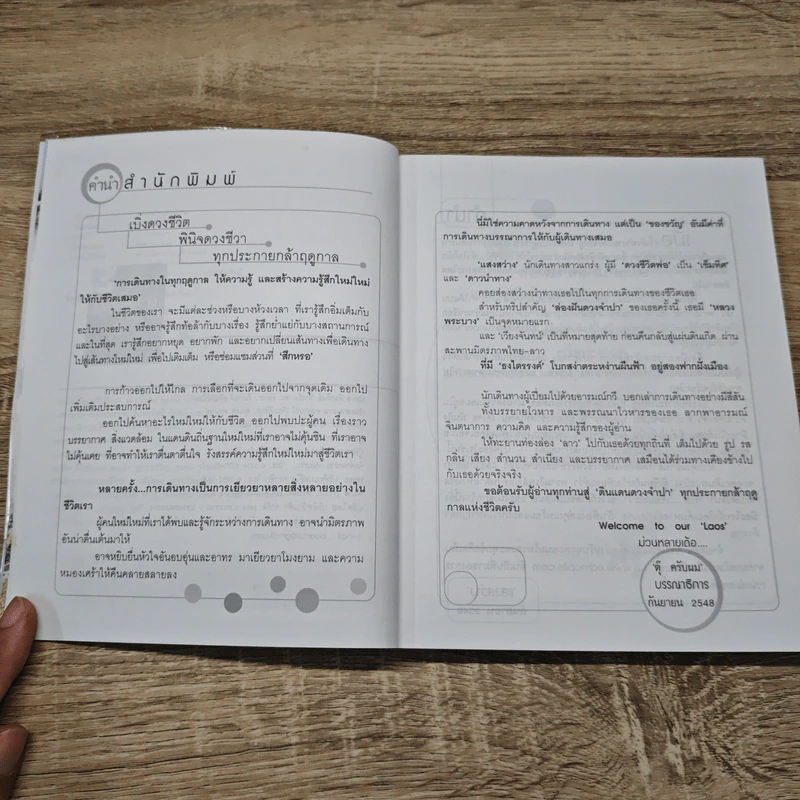 คำนำ สำนักพิมพ์
เบิ่งดวงชีวิต
พินิจดวงชีวา
ทุกประกายกล้าฤดูกาล
'การเดินทางในทุกฤดูกาล ให้ความรู้ และสร้างความรู้สึกใหม่ใหม่
ให้กับชีวิตเสมอ'
ในชีวิตของเรา จะมีแต่ละช่วงหรือบางห้วงเวลา ที่เรารู้สึกอิ่มเต็มกับ
อะไรบางอย่าง หรืออาจรู้สึกท้อล้ากับบางเรื่อง รู้สึกย่ำแย่กับบางสถานการณ์
และในที่สุด เรารู้สึกอยากหยุด อยากพัก และอยากเปลี่ยนเส้นทางเพื่อเดินทาง
ไปสู่เส้นทางใหม่ใหม่ เพื่อไปเติมเต็ม หรือซ่อมแซมส่วนที่ 'สึกหรอ'
การก้าวออกไปให้ไกล การเลือกที่จะเดินออกไปจากจุดเดิม ออกไป
เพิ่มเติมประสบการณ์
ออกไปค้นหาอะไรใหม่ใหม่ให้กับชีวิต ออกไปพบปะผู้คน เรื่องราว
บรรยากาศ สิ่งแวดล้อม ในแดนดินถิ่นฐานใหม่ใหม่ที่เราอาจไม่คุ้นชิน ที่เราอาจ
ไม่คุ้นเคย ที่อาจทำให้เราตื่นตาตื่นใจ รังสรรค์ความรู้สึกใหม่ใหม่มาสู่ชีวิตเรา
หลายครั้ง...การเดินทางเป็นการเยียวยาหลายสิ่งหลายอย่างใน
ชีวิตเรา
ผู้คนใหม่ใหม่ที่เราได้พบและรู้จักระหว่างการเดินทาง อาจนำมิตรภาพ
อันน่าตื่นเต้นมาให้
อาจหยิบยื่นหัวใจอันอบอุ่นและอาทร มาเยียวยาโมงยาม และความ
หมองเศร้าให้คืนคลายสลายลง
นี่มิใช่ความคาดหวังจากการเดินทาง แต่เป็น 'ของขวัญ' อันมีค่าที่
การเดินทางบรรณาการให้กับผู้เดินทางเสมอ
'แสงสว่าง' นักเดินทางสาวแกร่ง ผู้มี 'ดวงชีวิตพ่อ' เป็น 'เข็มทิศ'
และ 'ดาวนำทาง'
คอยส่องสว่างนำทางเธอไปในทุกการเดินทางของชีวิตเธอ
สำหรับทริปสำคัญ 'ล่องผืนดวงจำปา' ของเธอครั้งนี้ เธอมี 'หลวง
พระบาง' เป็นจุดหมายแรก
และ 'เวียงจันทน์' เป็นที่หมายสุดท้าย ก่อนคืนกลับสู่แผ่นดินเกิด ผ่าน
สะพานมิตรภาพไทย-ลาว
ที่มี 'ธงไตรรงค์' โบกสง่าตระหง่านผืนฟ้า อยู่สองฟากฝั่งเมือง
นักเดินทางผู้เปี่ยมไปด้วยอารมณ์กวี บอกเล่าการเดินทางอย่างมีสีสัน
ทั้งบรรยายโวหาร และพรรณนาโวหารของเธอ ลากพาอารมณ์
จินตนาการ ความคิด และความรู้สึกของผู้อ่าน
ให้ทะยานท่องล่อง 'ลาว' ไปกับเธอด้วยทุกถิ่นที่ เต็มไปด้วย รูป รส
กลิ่น เสียง สำนวน สำเนียง และบรรยากาศ เสมือนได้ร่วมทางเคียงข้างไป
กับเธอด้วยจริงจริง
ขอต้อนรับผู้อ่านทุกท่านสู่ 'ดินแดนดวงจำปา' ทุกประกายกล้าฤดู
กาลแห่งชีวิตครับ
Welcome to our 'Laos'
ม่วนหลายเด้อ....
'ตุ๊ ครับผม'
บรรณาธิการ
กันยายน 2548